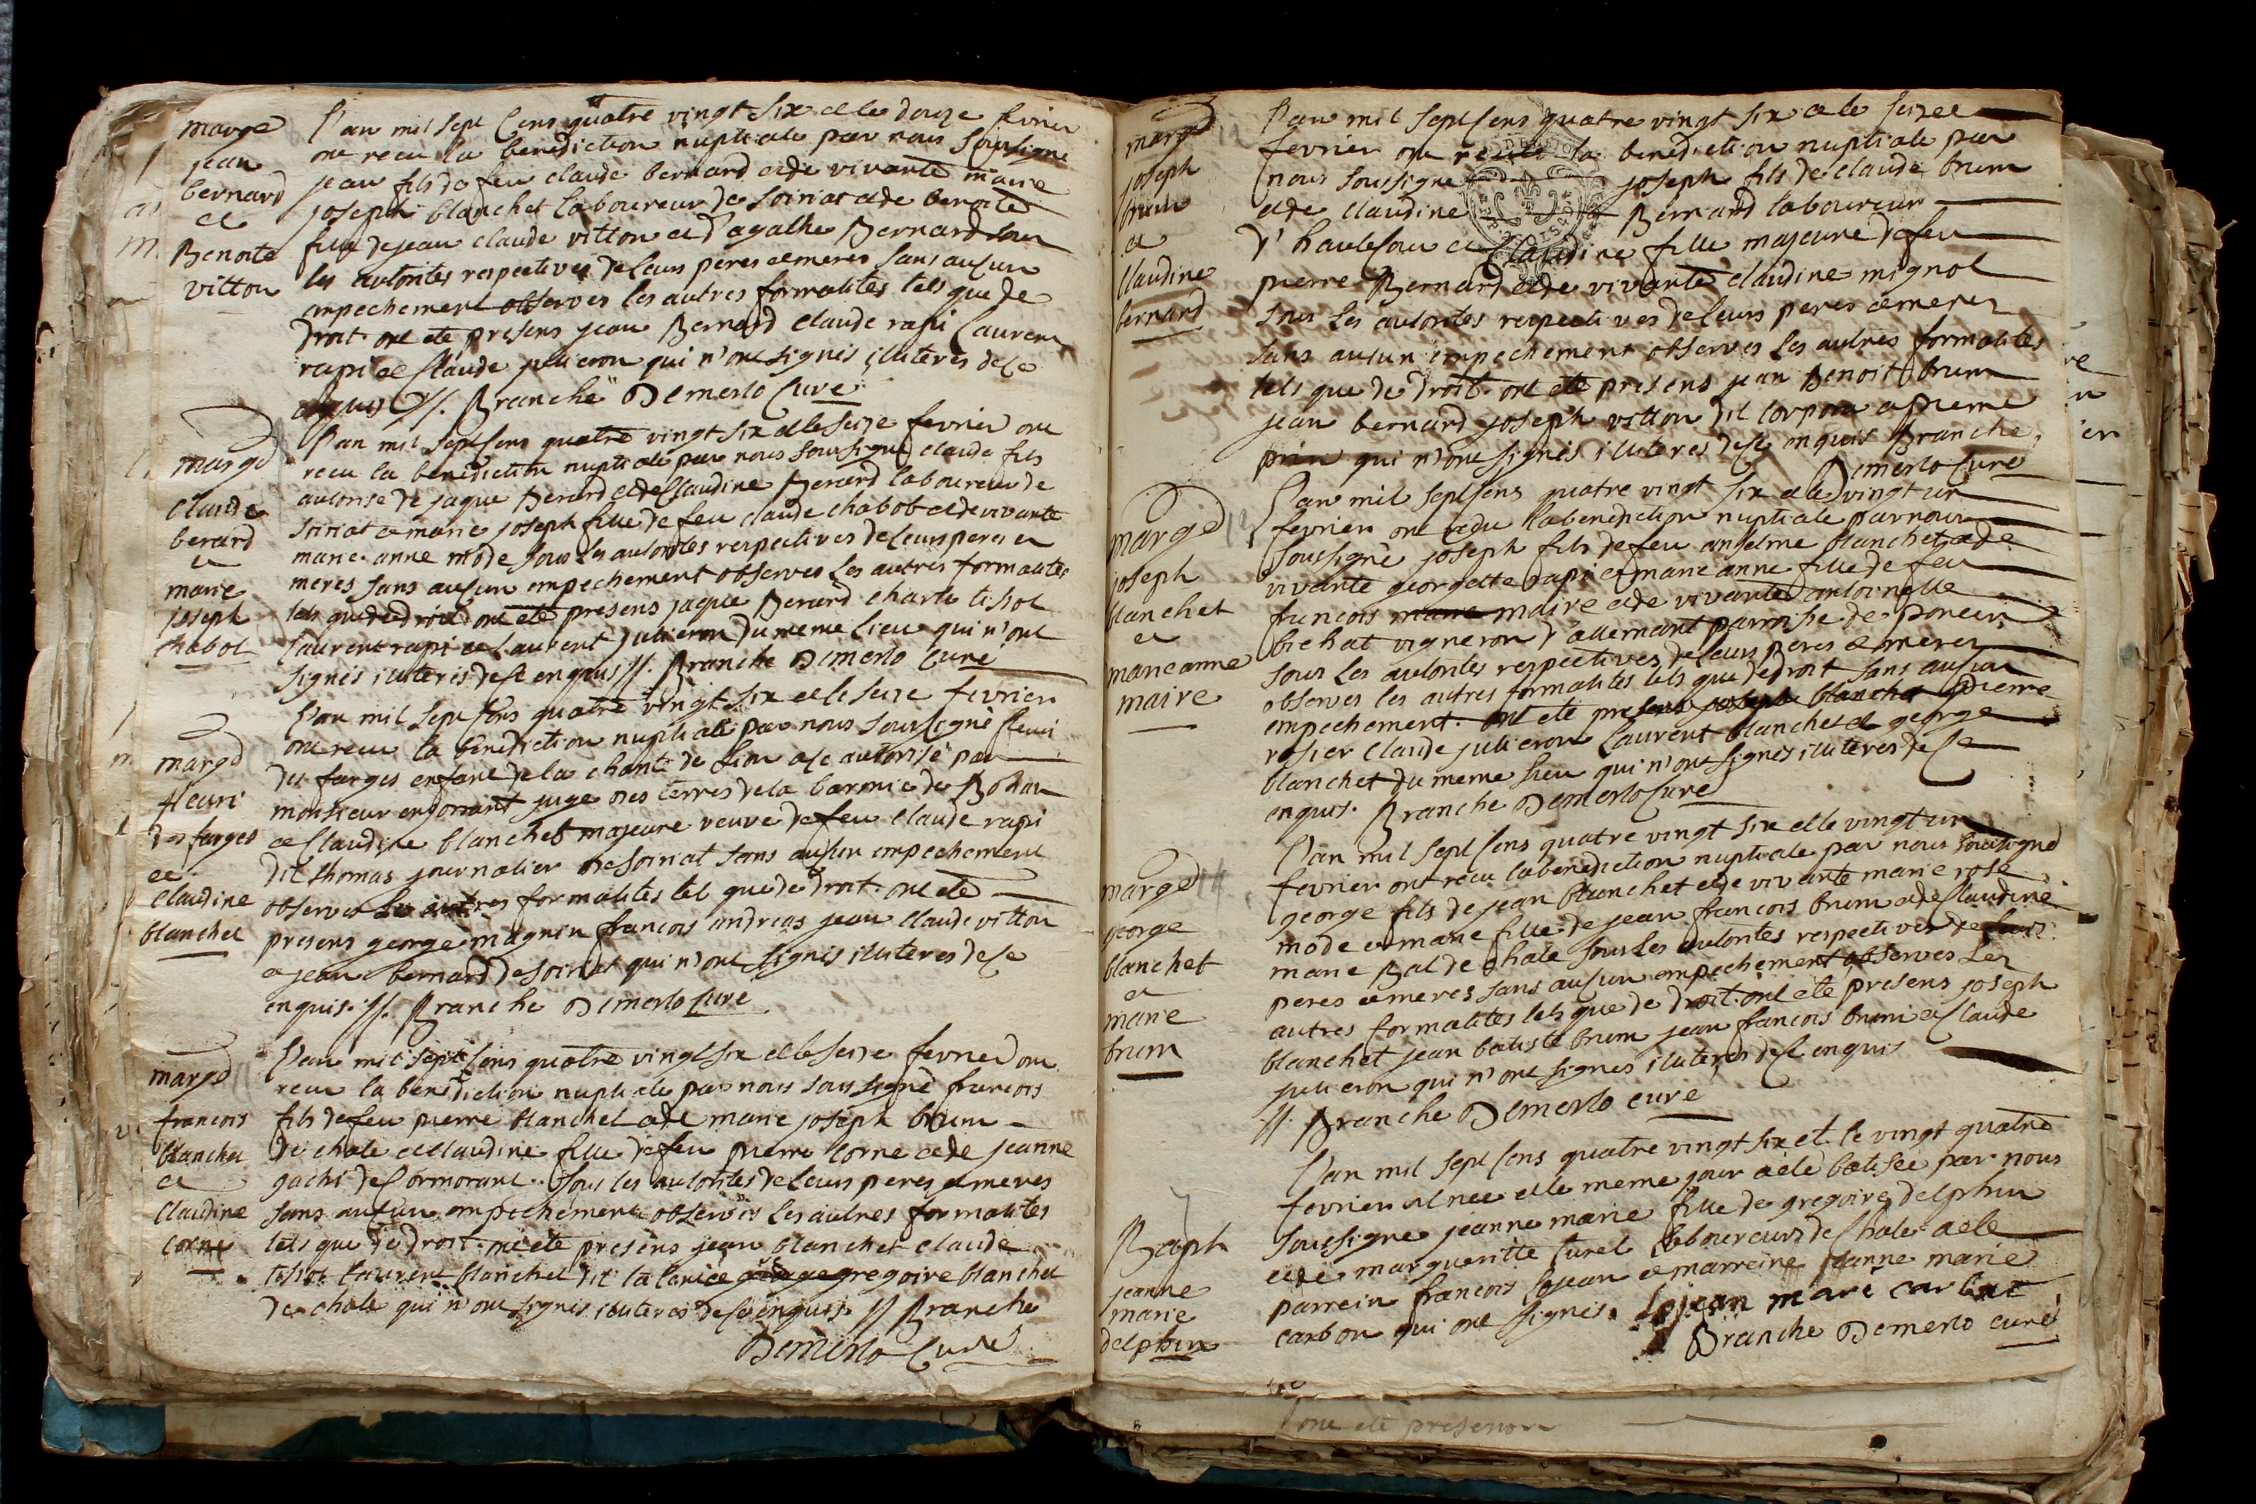 marge
jean
bernard
et
Benoite
vitton
L'an mil sept cens quatre vingt six et le douze fevrier
ont recu la benediction nuptiale par nous soussigne
jean fils de feu claude bernard et de vivante marie
joseph blanchet laboureur de soiriat et de benoite
fille de jean claude vitton et d'agathe Bernard sous
les autorites respectives de leurs peres et meres sans aucun
empechement observes les autres formalites tels que de
droit. ont ete presens jean Bernard claude rapi laurent
rapi et claude julieron qui n'ont signés illiteres de ce
enquis //. Branche Demerlo Curé
marge
claude
berard
et
marie
joseph
chabot
L'an mil sept cens quatre vingt six et le seize fevrier ont
recu la benediction nuptiale par nous soussigné claude fils
autorise de jaque Berard et de claudine Berard laboureur de
soiriat et marie joseph fille de feu claude chabot et de vivante
marie anne mode sous les autorites respectives de leurs peres et
meres sans aucun empechement observes les autres formalites
tels que de droit ont ete presens jaque Berard charle tissot
laurent rapi et laurent julieron du meme lieu qui n'ont
signés illiteres de ce enquis //. Branche Demerlo Curé
marge
fleuri
des farges
et
claudine
blanchet
L'an mil sept cens quatre vingt six et le seize fevrier
ont recu la benediction nuptiale par nous soussigné fleuri
des farges enfant de la charité de lion et autorisé par
monsieur juge des terres de la baronie de Bohan
et claudine blanchet majeure veuve de feu claude rapi
dit thomas journalier de soiriat sans aucun empechement
observes les autres formalites tel que de droit. ont ete
presens george magnin francois andreas jean claude vitton
et jean bernard de soiriat qui n'ont signés illiteres de ce
enquis. //. Branche Demerlo curé
marge
francois
blanchet
et
claudine
corne
L'an mil sept cens quatre vingt six et le seize fevrier ont
recu la benediction nuptiale par nous soussigné francois
fils de feu pierre blanchet et de marie joseph brum
de chale et claudine fille de feu pierre corne et de jeanne
gachi de cormorant. sous les autorites de leurs peres et meres
sans aucun empechement observés les autres formalites
tels que de droit. ont ete presens jean blanchet claude
tissot laurent blanchet dit gregoire blanchet
de chale qui n'ont signés illiteres de ce enquis. // Branche
Demerlo Curé
marge
joseph
brum
et
claudine
bernard
L'an mil sept cens quatre vingt six et le seize
fevrier ont la benediction nuptiale par
nous soussigne joseph fils de claude brum
et de claudine Bernard laboureur
d'hautesour et claudine fille majeure de feu
pierre Bernard et de vivante claudine mignot
sous les autorites respectives de leurs peres et meres
sans aucun empechement observes les autres formalites
tels que de droit. ont ete presens jean Benoit brum
jean bernard joseph vitton dit et pierre
qui n'ont signés illiteres de ce enquis Branche
Demerlo Curé
marge
joseph
blanchet
et
marie anne
maire
L'an mil sept cens quatre vingt six et le vingt un
fevrier ont recu la benediction nuptiale par nous
soussigné joseph fils de feu anselme blanchet et de
vivante georgette rapi et marie anne fille de feu
francois maire et de vivante antoinette
bichat vigneron d'allemant parroisse de poncin
sous les autorites respectives de leurs peres et meres
observes les autres formalites tels que de droit sans aucun
empechement. ont ete presens joseph blanchet pierre
rosier claude julieron laurent blanchet et george
blanchet du meme lieu qui n'ont signes illiteres de ce
enquis. Branche Demerlo Curé
marge
george
blanchet
et
marie
brum
L'an mil sept cens quatre vingt six et le vingt un
fevrier ont recu la benediction nuptiale par nous soussigné
george fils de jean blanchet et de vivante marie rose
mode et marie fille de jean francois brum et de claudine
marie Bal de chale sous les autorites respectives de leurs
peres et meres sans aucun empechement observes les
autres formalites tels que de droit. ont ete presens joseph
blanchet jean batiste brum jean francois brum et claude
julieron qui n'ont signes illiteres de ce enquis
//. Branche Demerlo curé
Bapt
jeanne
marie
delphin
L'an mil sept cens quatre vingt six et le vingt quatre
fevrier est née et le meme jour a eté batisée par nous
soussigne jeanne marie fille de gregoire delphin
et de margueritte curet laboureur de chale a ete
parrein francois lojean et marreine jeanne marie
carbon qui ont signés. lojean mari
Branche Demerlo curé
ont eté presens